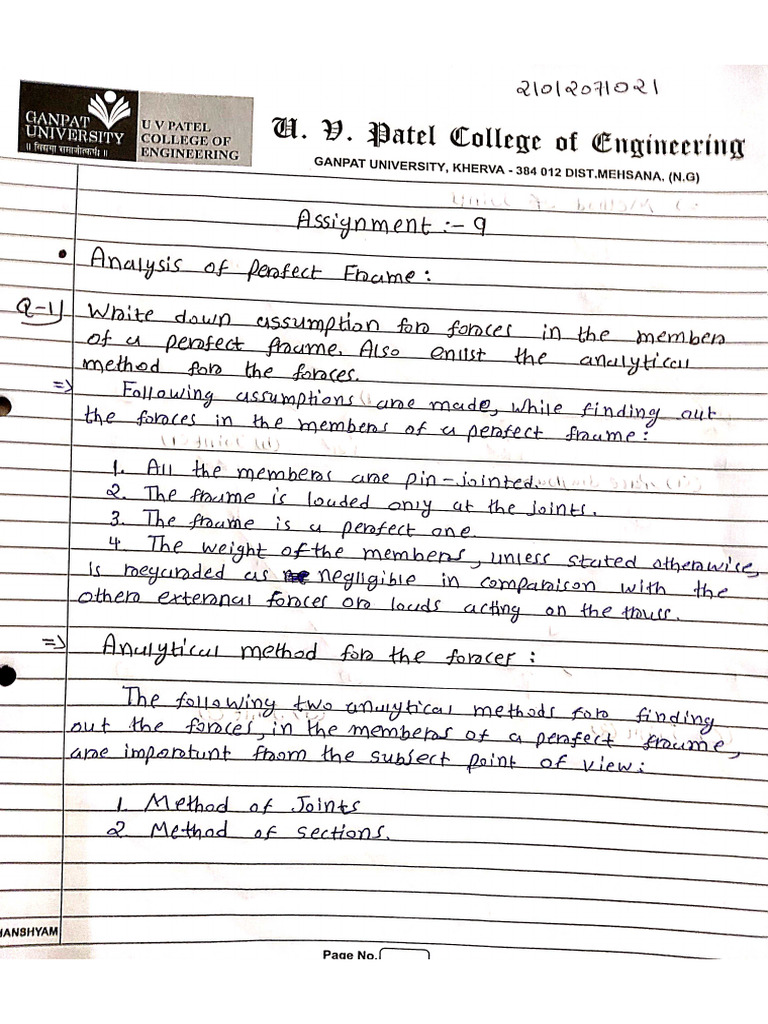 21012071021
GANPAT
UNIVERSITY
॥ विद्यया समाजोत्कर्षः ॥
U V PATEL
COLLEGE OF
ENGINEERING
U. V. Patel College of Engineering
GANPAT UNIVERSITY, KHERVA - 384 012 DIST.MEHSANA. (N.G)
Assignment :- 9
• Analysis of perfect Frame :
Q-1) Write down assumption for forces in the member
of a perfect frame. Also enlist the analytical
method for the forces.
=> Following assumptions are made, while finding out
the forces in the members of a perfect frame :
1. All the members are pin-jointed.
2. The frame is loaded only at the joints.
3. The frame is a perfect one.
4. The weight of the members, unless stated otherwise,
is regarded as negligible in comparison with the
other external forces or loads acting on the truss.
=> Analytical method for the forces :
The following two analytical methods for finding
out the forces, in the members of a perfect frame,
are important from the subject point of view :
1. Method of Joints
2. Method of sections.
HANSHYAM
Page No.